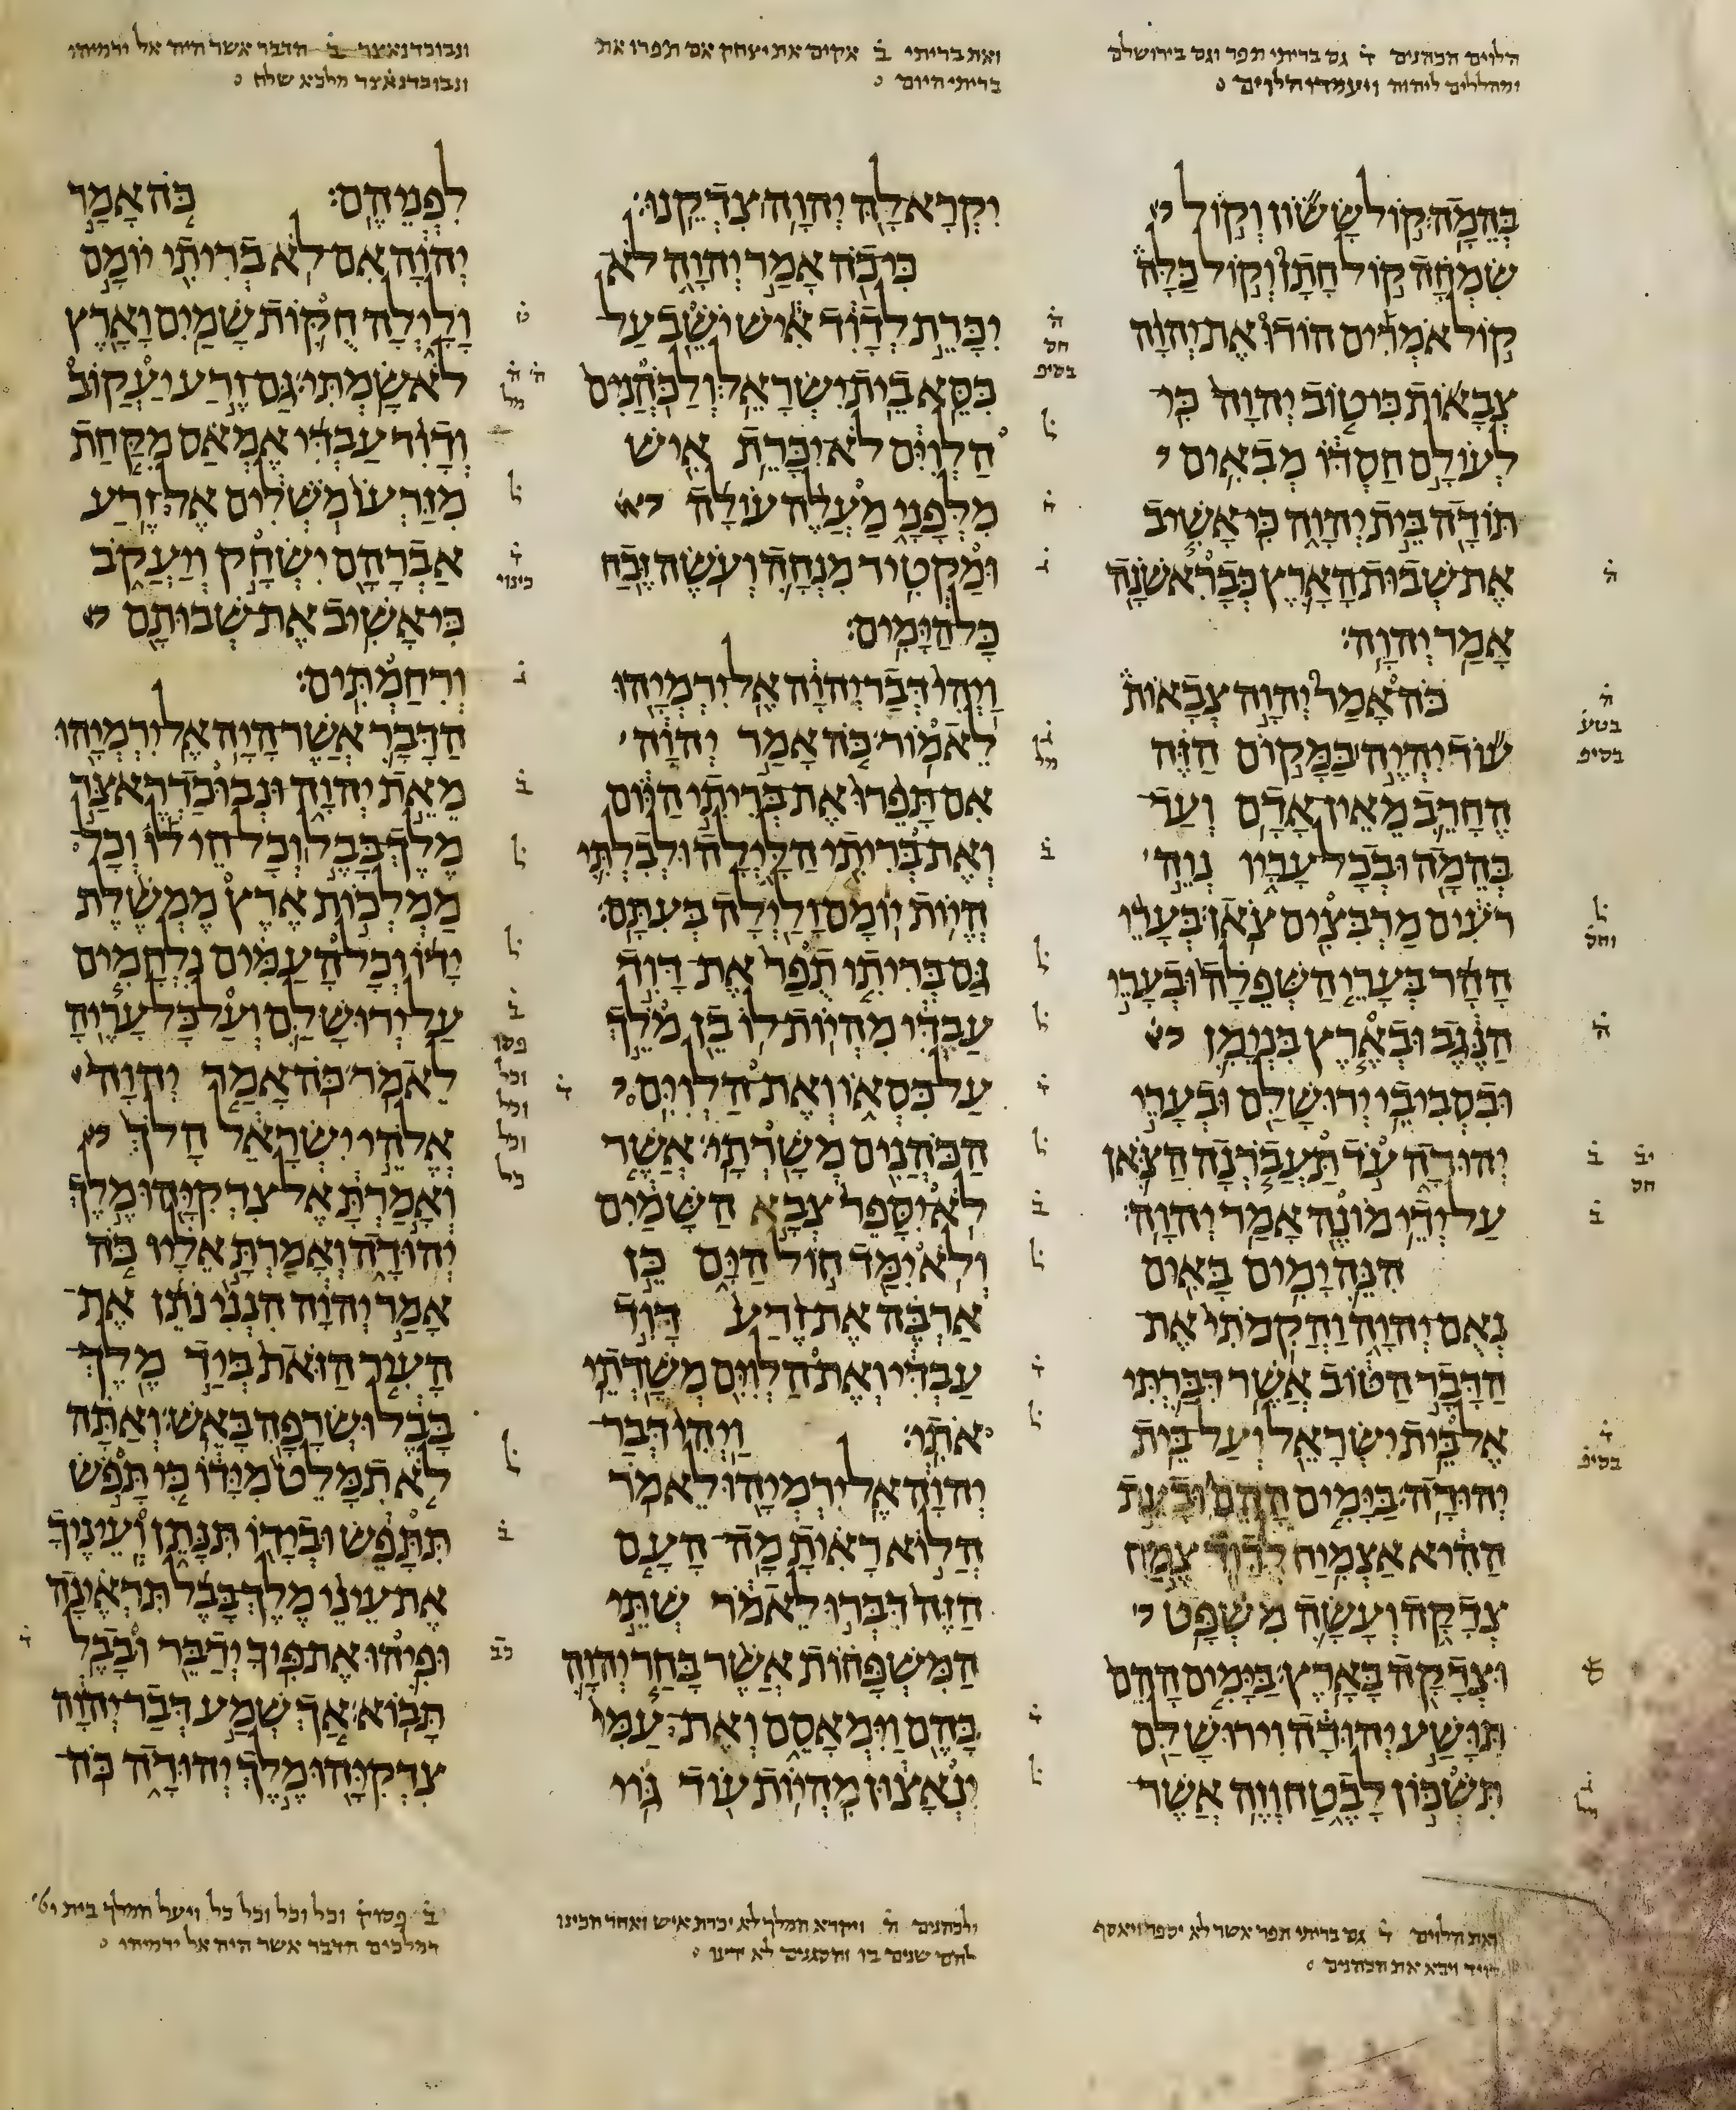 הלוים הכהנים ד גם בריתי תפר וגם בירושלם
ומהללים ליהוה ויעמדו הלוים
ואת בריתי ב אקים את יצחק אם תפרו את
בריתי היום
ונבוכדנאצר ב הדבר אשר היה אל ירמיהו
ונבוכדנאצר מלכא שלח
בהמה קול ששון וקול
שמחה קול חתן וקול כלה
קול אמרים הודו את יהוה
צבאות כי טוב יהוה כי
לעולם חסדו מבאים
תודה בית יהוה כי אשיב
את שבות הארץ כבראשנה
אמר יהוה׃
כה אמר יהוה צבאות
עוד יהיה במקום הזה
החרב מאין אדם ועד
בהמה ובכל עריו נוה
רעים מרבצים צאן׃ בערי
ההר בערי השפלה ובערי
הנגב ובארץ בנימן
ובסביבי ירושלם ובערי
יהודה עד תעברנה הצאן
על ידי מונה אמר יהוה׃
הנה ימים באים
נאם יהוה והקמתי את
הדבר הטוב אשר דברתי
אל בית ישראל ועל בית
יהודה׃ בימים ההם ובעת
ההיא אצמיח לדוד צמח
צדקה ועשה משפט
וצדקה בארץ׃ בימים ההם
תושע יהודה וירושלם
תשכון לבטח וזה אשר
יקרא לה יהוה צדקנו׃
כי כה אמר יהוה לא
יכרת לדוד איש ישב על
כסא בית ישראל׃ ולכהנים
הלוים לא יכרת איש
מלפני מעלה עולה
ומקטיר מנחה ועשה זבח
כל הימים׃
ויהי דבר יהוה אל ירמיהו
לאמור׃ כה אמר יהוה
אם תפרו את בריתי היום
ואת בריתי הלילה ולבלתי
היות יומם ולילה בעתם׃
גם בריתי תפר את דוד
עבדי מהיות לו בן מלך
על כסאו ואת הלוים
הכהנים משרתי׃ אשר
לא יספר צבא השמים
ולא ימד חול הים כן
ארבה את זרע דוד
עבדי ואת הלוים משרתי
אתי׃ ויהי דבר
יהוה אל ירמיהו לאמר
הלוא ראית מה העם
הזה דברו לאמר שתי
המשפחות אשר בחר יהוה
בהם וימאסם ואת עמי
ינאצון מהיות עוד גוי
לפניהם׃ כה אמר
יהוה אם לא בריתי יומם
ולילה חקות שמים וארץ
לא שמתי׃ גם זרע יעקוב
ודוד עבדי אמאס מקחת
מזרעו משלים אל זרע
אברהם ישחק ויעקב
כי אשיב את שבותם
ורחמתים׃
הדבר אשר היה אל ירמיהו
מאת יהוה ונבוכדראצר
מלך בבל וכל חילו וכל
ממלכות ארץ ממשלת
ידו וכל העמים נלחמים
על ירושלם ועל כל עריה
לאמר׃ כה אמר יהוה
אלהי ישראל הלך
ואמרת אל צדקיהו מלך
יהודה ואמרת אליו כה
אמר יהוה הנני נתן את
העיר הזאת ביד מלך
בבל ושרפה באש׃ ואתה
לא תמלט מידו כי תפש
תתפש ובידו תנתן ועיניך
את עיני מלך בבל תראינה
ופיהו את פיך ידבר ובבל
תבוא׃ אך שמע דבר יהוה
צדקיהו מלך יהודה כה
ואת הלוים ד גם בריתי תפר אשר לא יספר ויאסף
דויד ויבא את הכהנים
ולכהנים ה ויקרא המלך לא יכרת איש ואחר הכינו
להם שנים בו והסגנים לא ידעו
ב פסוק וכל וכל וכל כל ויעל המלך בית יי
דמלכים הדבר אשר היה אל ירמיהו